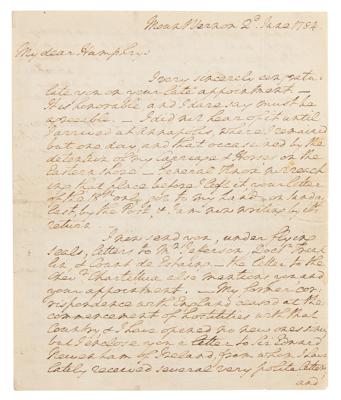 Mount Vernon 2d. June 1784
My dear Humphrys
I very sincerely congratu-
late you on your late appointment. —
It is honorable, and I dare say must be
agreeable. — I did not hear of it until
I arrived at Annapolis, where I remained
but one day and that occasioned by the
detention of my Carriage & Horses on the
Eastern shore — General Knox not reach
ing that place before I left it, your letter
of the 18th only got to my hand on Sunday
last by the Post, & I am now writing by its
return. —
I now send you, under flying
seals, letters to Mr. Jefferson, Doctr. Frank
lin & Count de Estaing — the letter to the
Chevr. Chartellux also mentions you and
your appointment. — My former cor-
rispondence with England ceased at the
commencement of hostilities with that
Country, & I have opened no new ones since,
but I inclose you a letter to Sir Edward
Newenham of Ireland, from whom I have
lately received several very polite letters
and